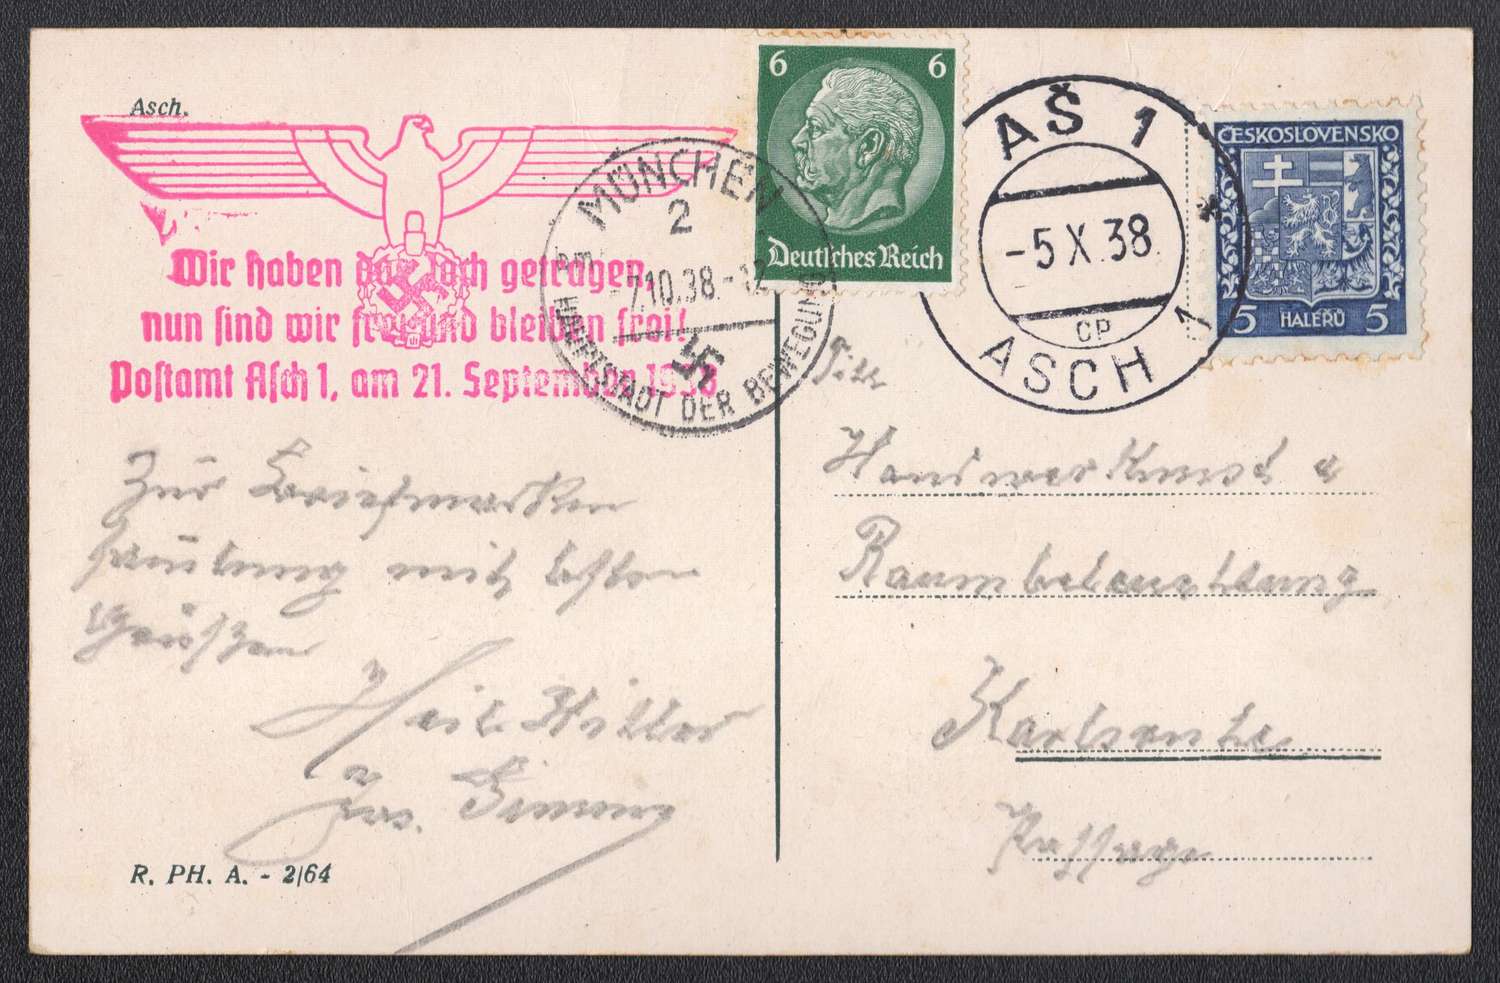 Asch.
Wir haben das Joch getragen,
nun sind wir frei und bleiben frei!
Postamt Asch 1, am 21. September 1938
MÜNCHEN
2
-7.10.38.-12
HAUPTSTADT DER BEWEGUNG
6 6
Deutsches Reich
AŠ 1
-5 X 38
CP
ASCH 1
ČESKOSLOVENSKO
5 HALERŮ 5
Zur Briefmarken
sammlung mit besten
Grüßen
Heil Hitler
Jos.
Handwerkkunst u
Raumbeleuchtung
Karlsruhe
Passage
R. PH. A. - 2/64